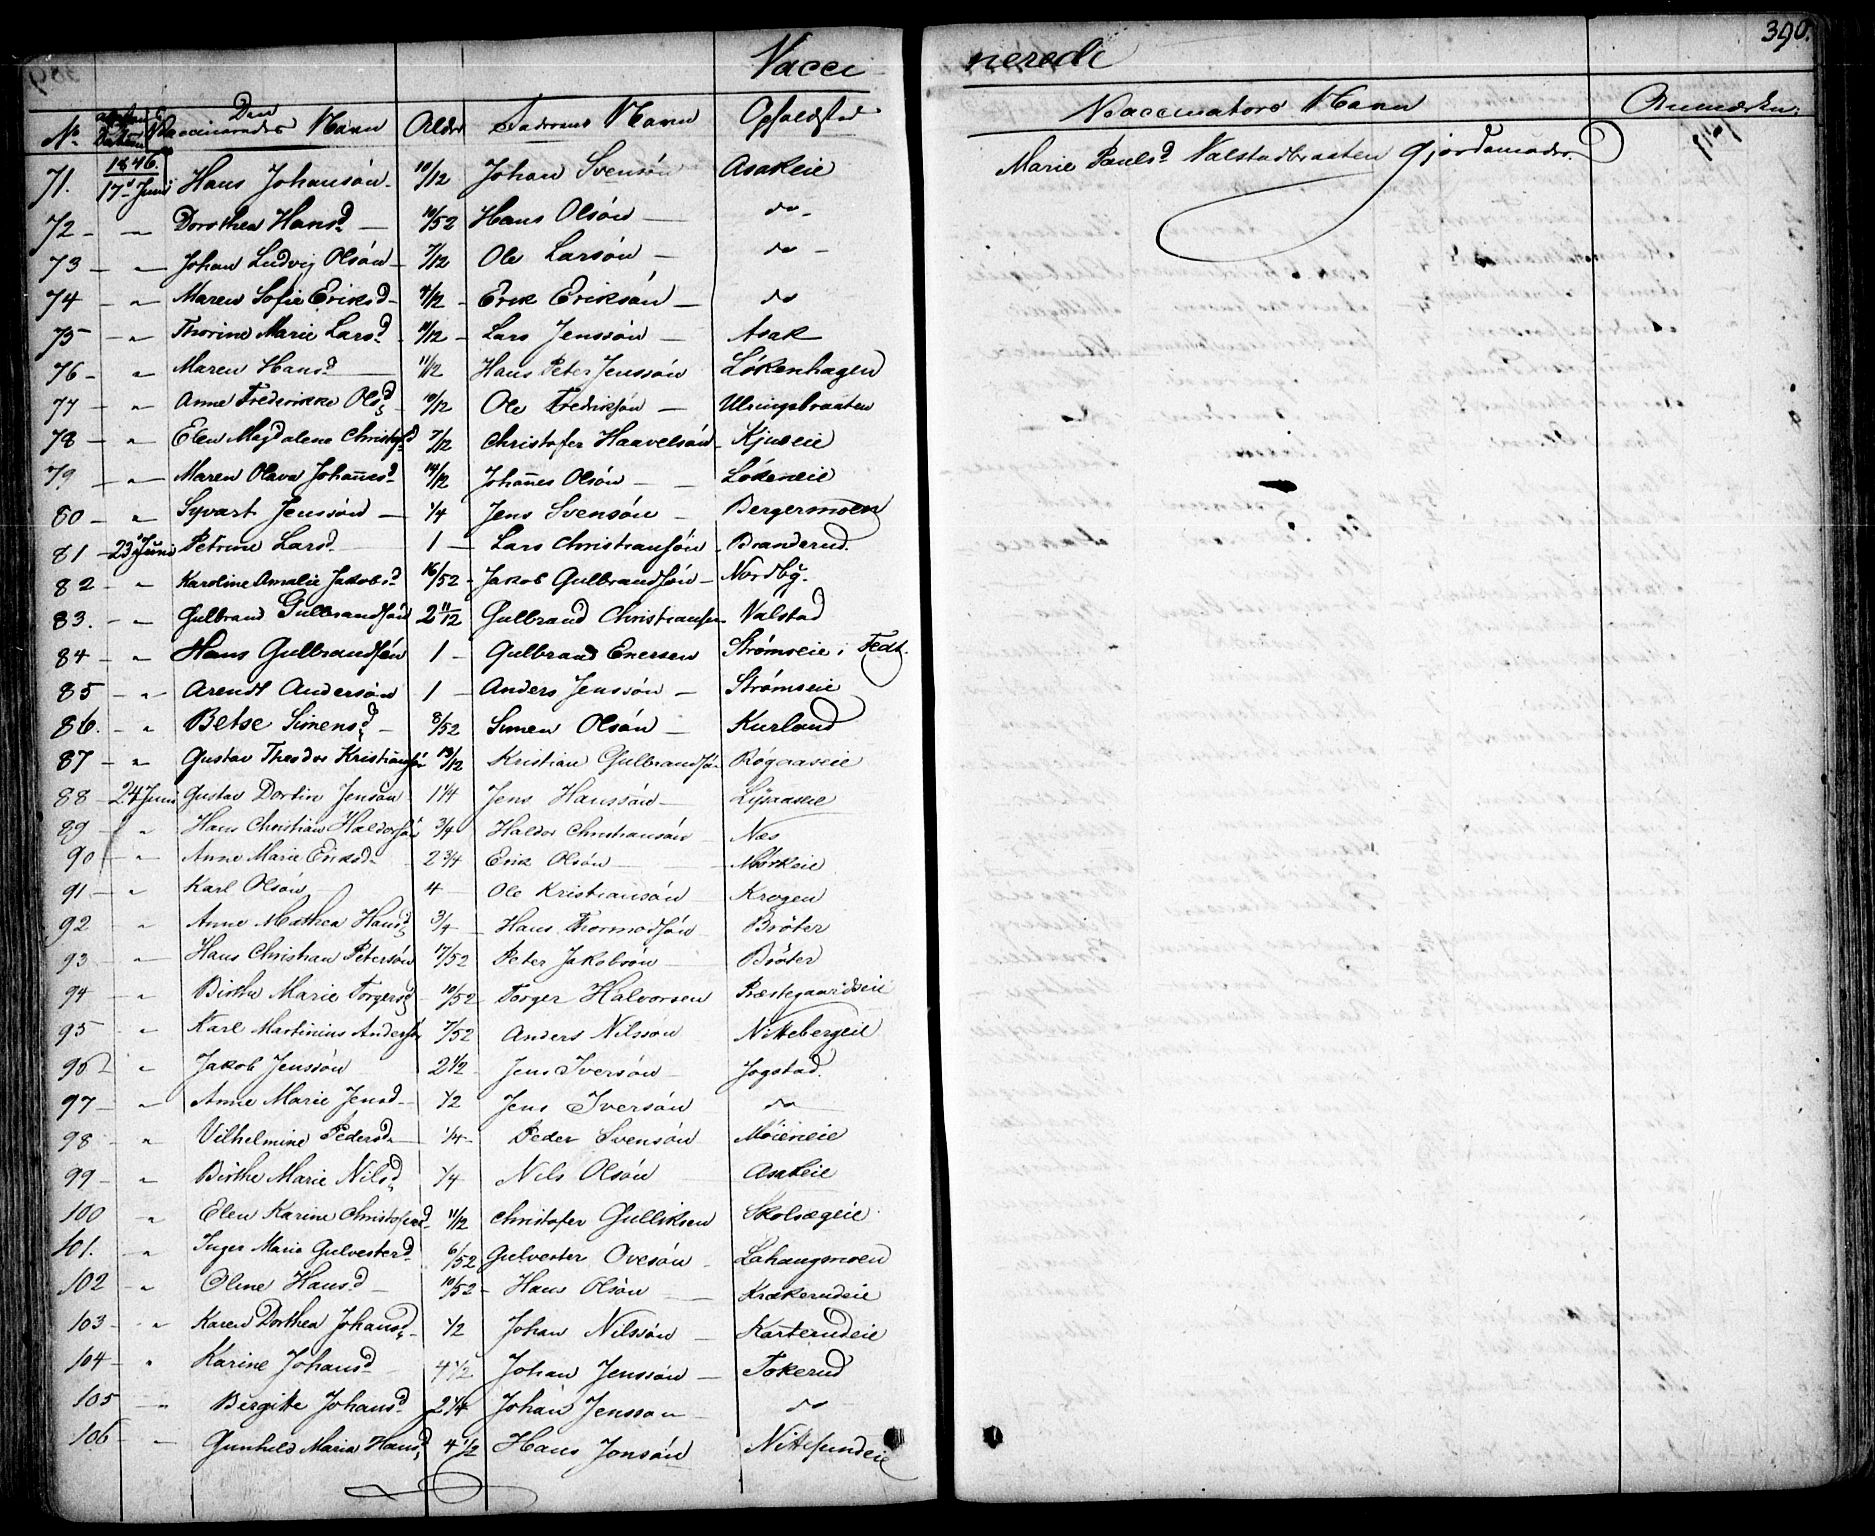 390.
Vacci nerede
No. Attestens Datum Den Vaccineredes Navn Alder Faderens Navn Opholdsted Vaccinators Navn Anmærkn:
1846.
71. 17d Juni Hans Johansón 10/12 Johan Svensón Asakeie Marie Paulsd Valstadbraaten Gjordemoder.
72 - " Dorothea Hansd 10/52 Hans Olsón do -
73 - " Johan Ludvig Olsón 7/12 Ole Larsón do -
74 - " Maren Sofie Eriksd - Erik Eriksón do
75 - " Thorine Marie Larsd - Lars Jenssón Asak
76 - " Maren Hansd 11/12 Hans Peter Jenssón Løkenhagen
77 - " Anne Frederikke Olsd 10/12 Ole Fredriksón Ulringsbraaten
78 - " Elen Magdalene Christofd 7/12 Christofer Haavelsón Kjuseie
79 - " Maren Olava Johañesd 14/12 Johañes Olsón Løkeneie
80 - " Syvart Jenssón 1/4 Jens Svensón Bergermoen
81 - 23d Juni Petrine Larsd 1 Lars Christiansón Branderud.
82 - " Karoline Amalie Jakobsd 16/52 Jakob Gulbrandsón Nordby.
83. - " Gulbrand Gulbrandsón 2 11/12 Gulbrand Christiansen Valstad
84 - " Hans Gulbrandsón 1 Gulbrand Enersen Strømseie i Fedt.
85 - " Arendt Andersón 1 Anders Jenssón Strømseie
86. - " Betse Simensd 8/52 Simen Olsón Kurland
87 - " Gustav Theodor Kristiansón 13/12 Kristian Gulbrandsón Rógaaseie
88 - 24 Juni Gustav Dortin Jensón 1 1/4 Jens Hanssón Lysaaseie
89 - " Hans Christian Haldorsón 3/4 Haldor Christiansón Næs
90 - " Anne Marie Eriksd. 2 3/4 Erik Olsón Mórkeie
91 - " Karl Olsón 4 Ole Kristiansón Krogen
92 " Anne Mathea Hansd 3/4 Hans Thormodsón Bróter
93 - " Hans Christian Petersón 17/52 Peter Jakobsón Bróter
94 - " Birthe Marie Torgersd 10/52 Torger Halvorsen Præstegaardseie
95 - " Karl Martinius Andersón 7/52 Anders Nilssón Nittebergeie
96 - " Jakob Jenssón 2 1/2 Jens Iversón Jogstad.
97 - " Anne Marie Jensd 1/2 Jens Iversón do
98 - " Vilhelmine Pedersd 1/4 Peder Svensón Móieneie
99 - " Birthe Marie Nilsd 1/4 Nils Olsón Asakeie
100 " Elen Karine Christofersd 11/12 Christofer Gulliksen Skolsægeie
101. - " Inger Marie Gulvesterd 6/52 Gulvester Ovesón Lohaugmoen
102 - " Oline Hansd 10/52 Hans Olsón Krækerudeie
103 - " Karen Dorthea Johansd 1/2 Johan Nilssón Karterudeie
104 - " Karine Johansd 4 1/2 Johan Jenssón Tokerud
105 - " Bergitte Johansd 2 1/4 Johan Jensson do
106 - " Gunhild Maria Hansd 4 1/2 Hans Jonsón Nittesundeie